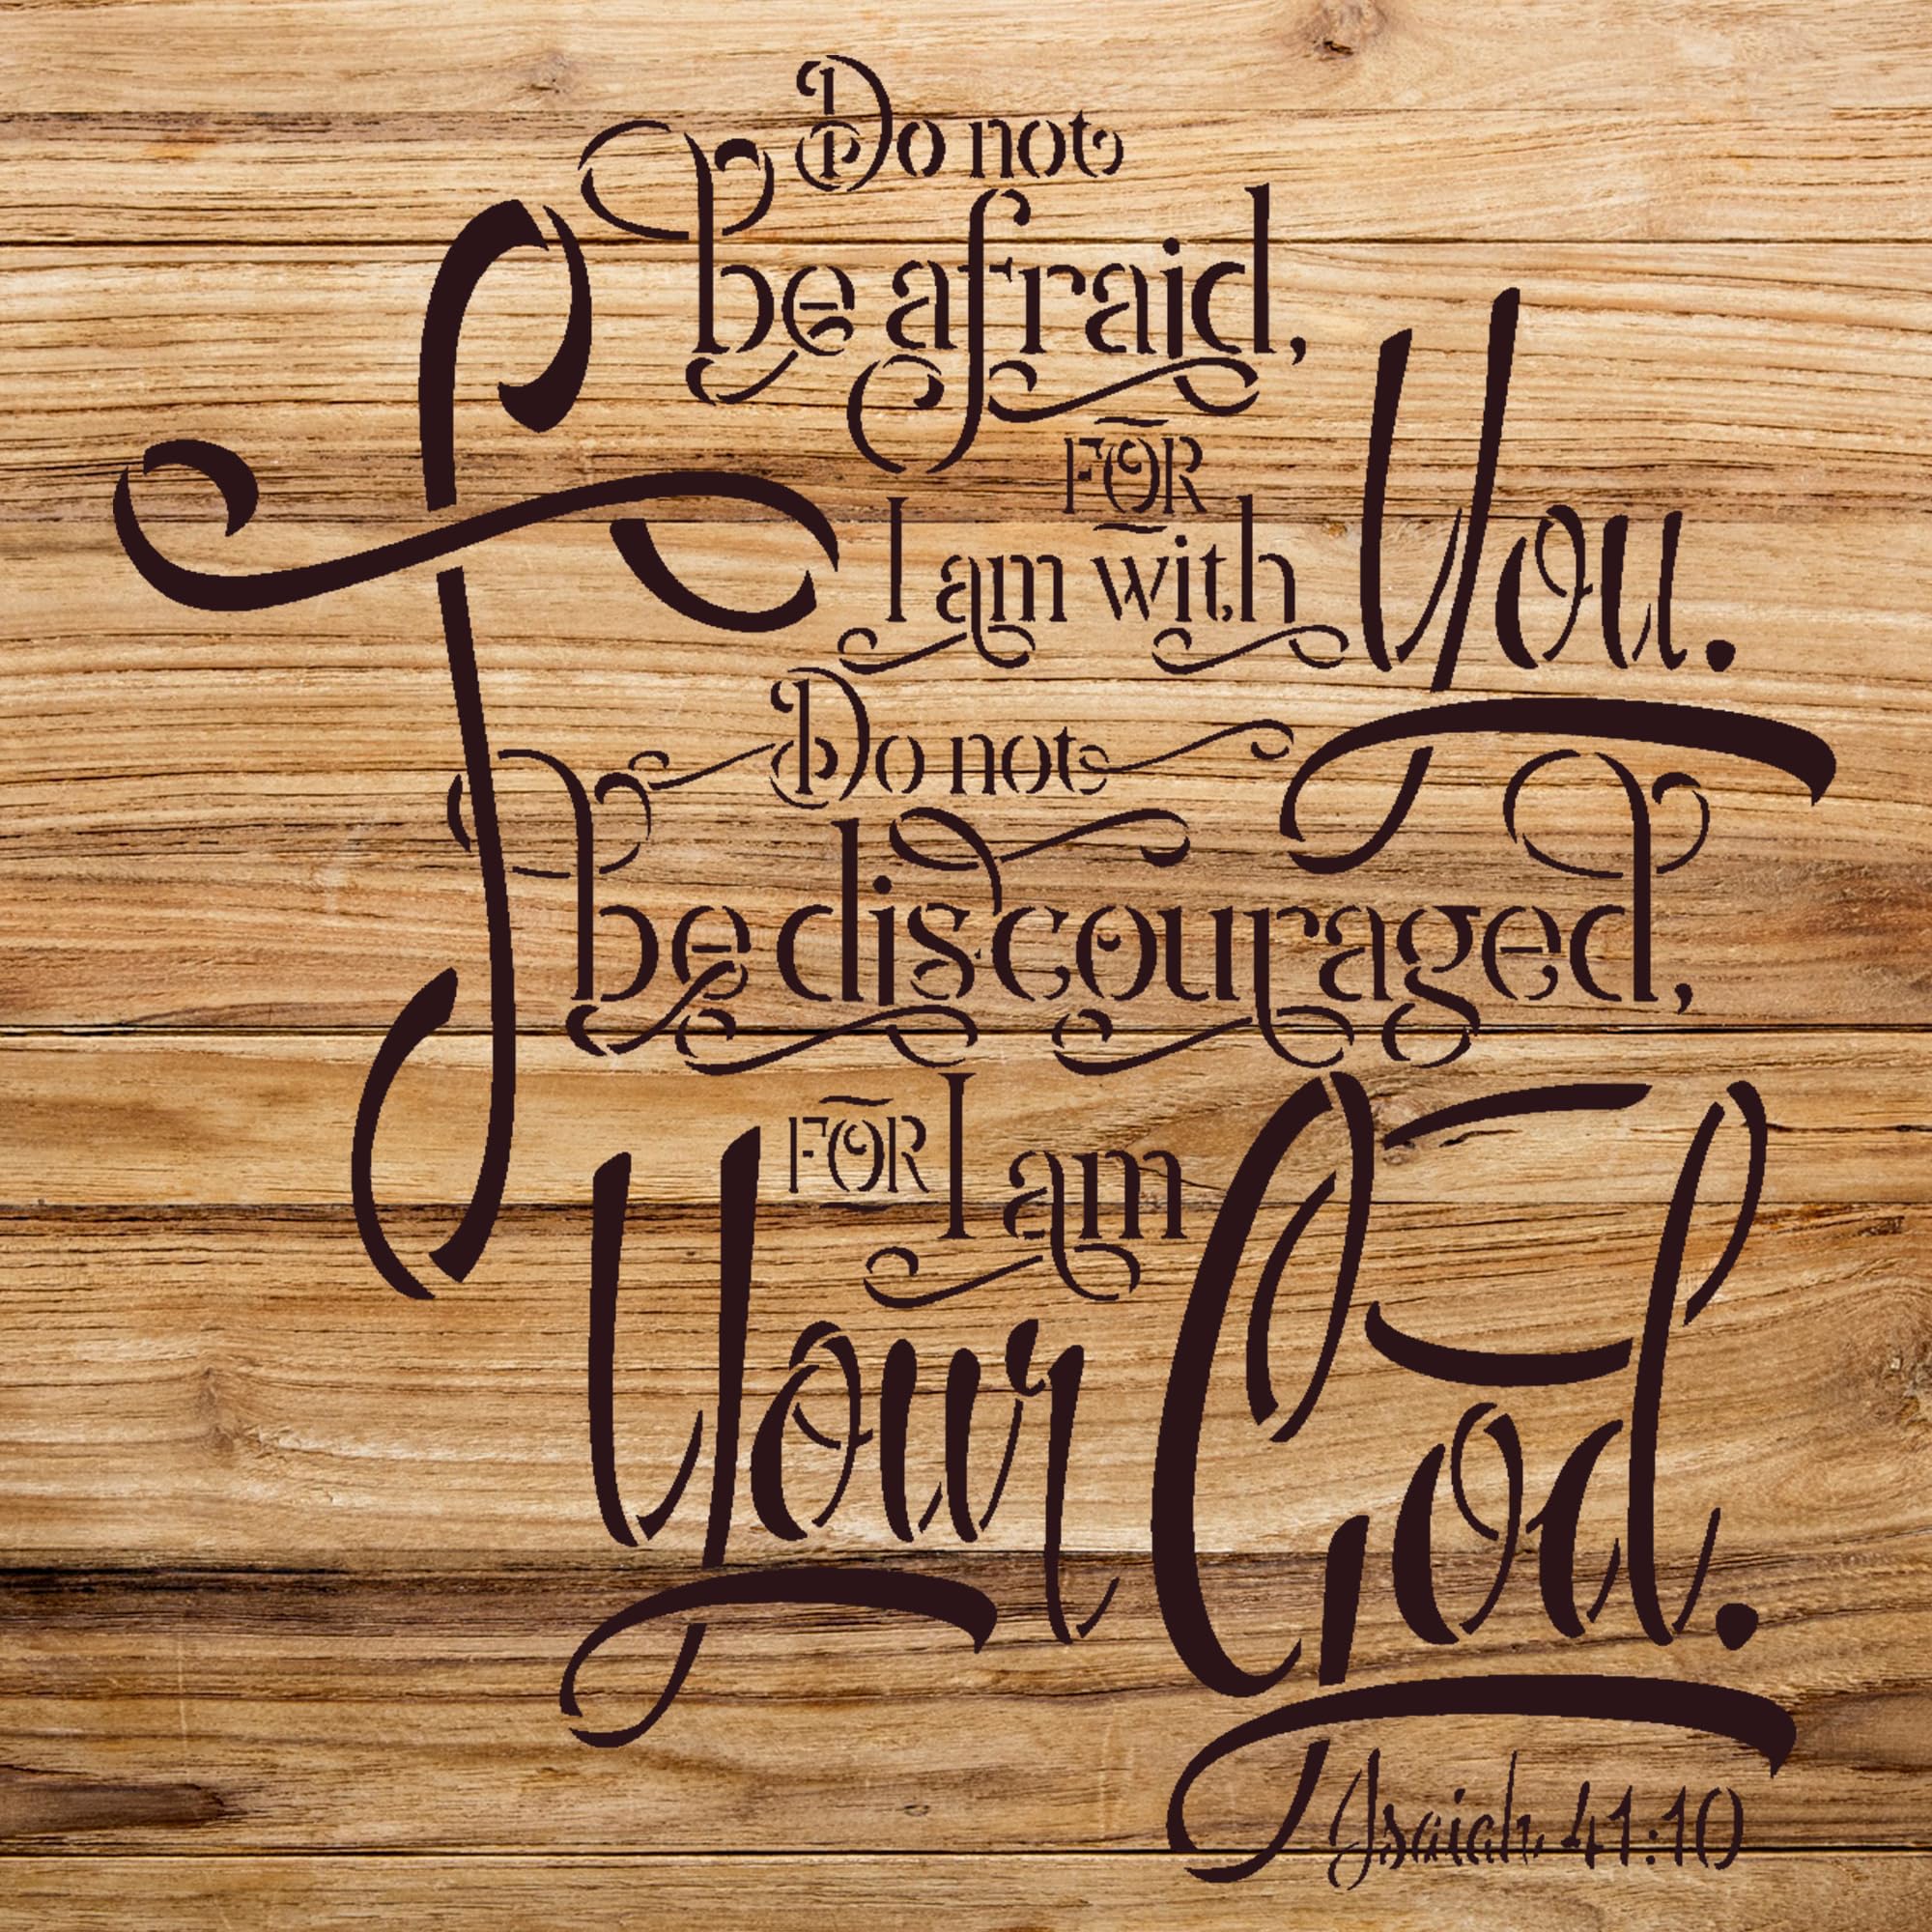 Do not
be afraid,
FOR
I am with You.
Do not
be discouraged,
FOR I am
Your God.
Isaiah 41:10